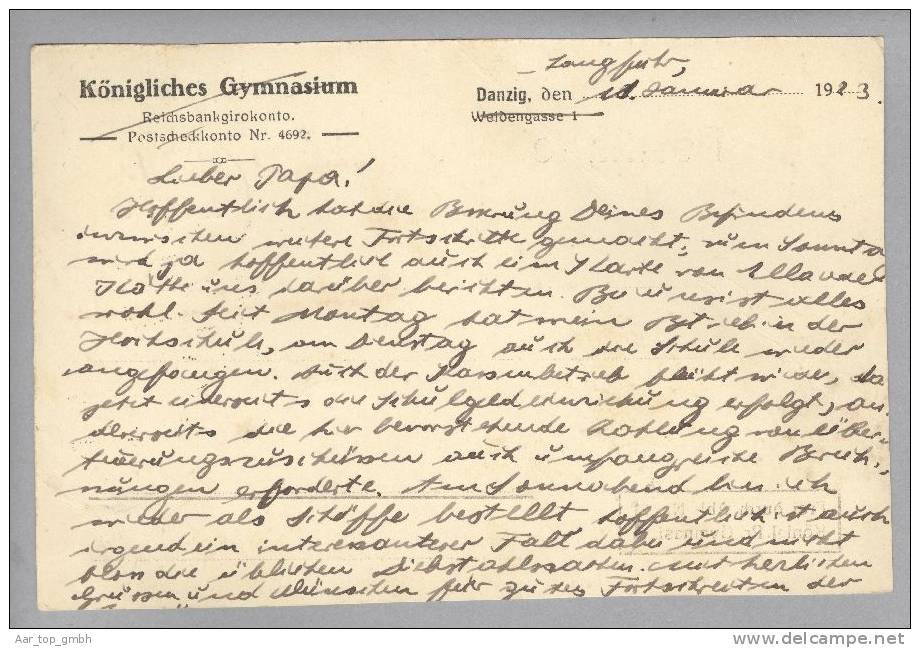 Langfuhr,
Königliches Gymnasium
Danzig, den 11. Januar 1923.
Reichsbankgirokonto.
Weidengasse 1
Postscheckkonto Nr. 4692.
Lieber Papa!
Hoffentlich hat die Besserung Deines Befindens
inzwischen weitere Fortschritte gemacht; zum Sonntag
wird ja hoffentlich auch eine Karte von Ella oder
Käthe uns darüber berichten. Bei uns ist alles
wohl. Seit Montag hat mein Betrieb in der
Hochschule, am Dienstag auch die Schule wieder
angefangen. Auch der Kassenbetrieb blüht wieder, da
jetzt einerseits die Schulgeldeinziehung erfolgt, an-
dererseits die hier bevorstehende Zahlung von Über-
teuerungszuschüssen auch umfangreiche Berech-
nungen erforderte. Am Sonnabend bin ich
wieder als Schöffe bestellt hoffentlich ist auch
irgend ein interessanterer Fall dabei und nicht
blos die üblichen Diebstahlssachen. mit herzlichen
Grüssen und Wünschen für gutes Fortschreiten der
Aar_top_gmbh
www.delcampe.net